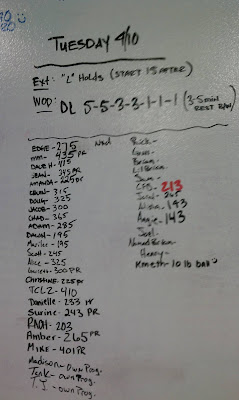 TUESDAY 4/10
Ext: "L" Holds (START 15 AFTER)
WOD: DL 5-5-3-3-1-1-1 (3-5min REST B/W)
EDDIE - 275
mm - 435 PR
DAVE H - 415
SEAN - 345 PR
AMANDA - 225 PR
315
DOUG - 325
JACOB - 300
CHAD - 365
ADAM - 285
DAWN - 195
195
SCOTT - 245
Alice - 325
300 PR
CHRISTINE - 225 PR
TCL2 - 410
Danielle - 233 PR
Surine - 243 PR
RACH - 203
Amber - 265 PR
MIKE - 401 PR
Madison - own Prog.
Tank - own Prog.
T.J. - own Prog.
Rick -
Brian -
Lil Brian -
Sam -
CFB - 213
Alisa - 143
Angie - 143
Joel -
Henry -
Kenneth - 10 lb ball